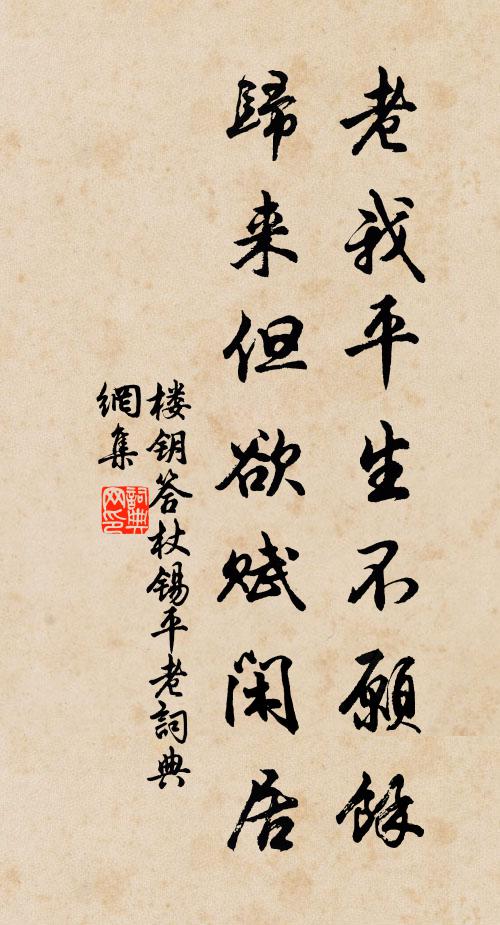 老我平生不願餘
歸来但欲赋闲居
楼钥答杖锡平老詞典
網集
詞典网印